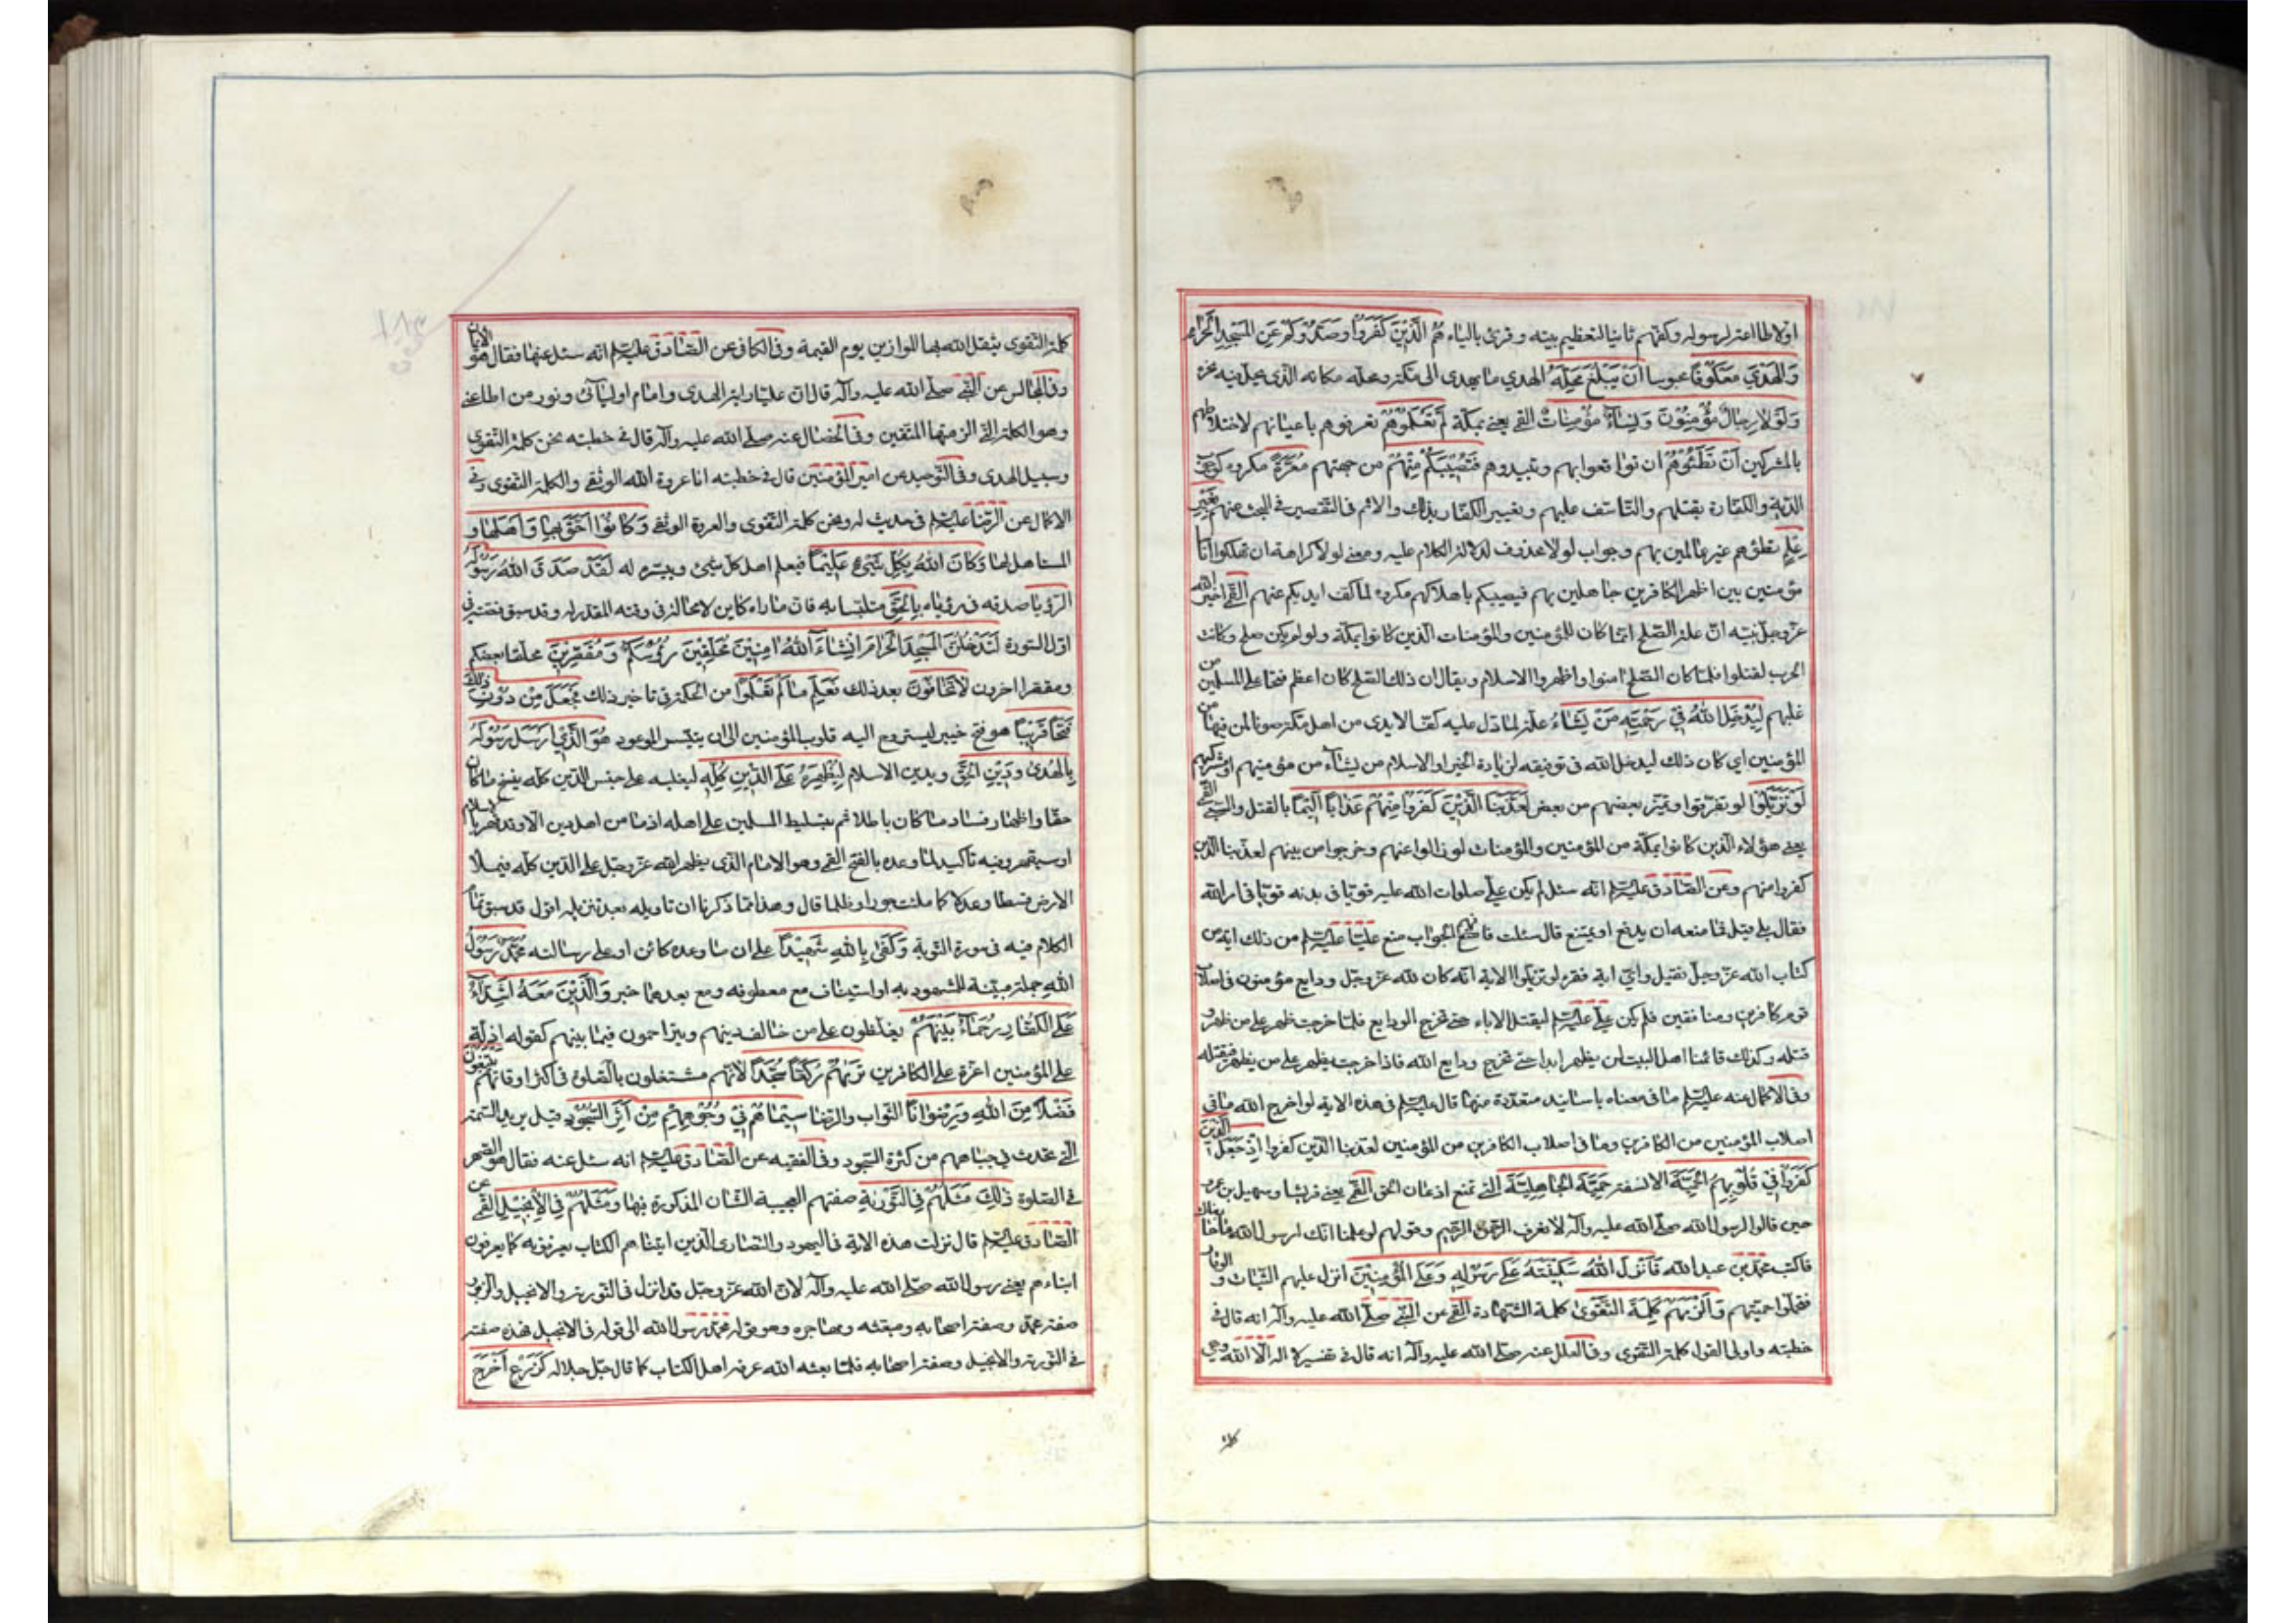 اولا طاعة لرسوله وكفهم ثانيا لتعظيم بيته وقرئ بالياء هُمُ الَّذِينَ كَفَرُوا وَصَدُّوكُمْ عَنِ الْمَسْجِدِ الْحَرَامِ
وَالْهَدْيَ مَعْكُوفًا محبوسا أَنْ يَبْلُغَ مَحِلَّهُ الهدي ما يهدى الى مكة ومحله مكانه الذى يحل فيه نحره
وَلَوْلَا رِجَالٌ مُؤْمِنُونَ وَنِسَاءٌ مُؤْمِنَاتٌ القمى يعنى بمكة لَمْ تَعْلَمُوهُمْ لم تعرفوهم باعيانهم لاختلاطهم
بالمشركين أَنْ تَطَئُوهُمْ ان توقعوا بهم وتبيدوهم فَتُصِيبَكُمْ مِنْهُمْ من جهتهم مَعَرَّةٌ مكروه كوجوب
الدية والكفارة بقتلهم والتاسف عليهم وتعيير الكفار بذلك والاثم فى التقصير فى البحث عنهم بِغَيْرِ
عِلْمٍ تطئوهم غير عالمين بهم وجواب لولا محذوف لدلالة الكلام عليه ومعنى لولا كراهة ان تهلكوا اناسا
مؤمنين بين اظهر الكافرين جاهلين بهم فيصيبكم باهلاكهم مكروه لما كف ايديكم عنهم القمى اخبر الله
عز وجل نبيه ان علة الصلح انما كان للمؤمنين والمؤمنات الذين كانوا بمكة ولو لم يكن صلح وكانت
الحرب لقتلوا فلما كان الصلح امنوا واظهروا الاسلام ويقال ان ذلك الصلح كان اعظم فتحا على المسلمين من
غلبهم لِيُدْخِلَ اللَّهُ فِي رَحْمَتِهِ مَنْ يَشَاءُ علة لما دل عليه كف الايدى من اهل مكة صونا لمن فيها من
المؤمنين اى كان ذلك ليدخل الله فى توفيقه لزيادة الخير او الاسلام من يشاء من مؤمنيهم او مشركيهم
لَوْ تَزَيَّلُوا لو تفرقوا وتميز بعضهم من بعض لَعَذَّبْنَا الَّذِينَ كَفَرُوا مِنْهُمْ عَذَابًا أَلِيمًا بالقتل والسبى القمى
يعنى هؤلاء الذين كانوا بمكة من المؤمنين والمؤمنات لو زالوا عنهم وخرجوا من بينهم لعذبنا الذين
كفروا منهم وعن الصادق عليه السلام انه سئل لم يكن على صلوات الله عليه قويا فى بدنه قويا فى امر الله
فقال بلى قيل فما منعه ان يدفع او يمتنع قال سئلت فافهم الجواب منع عليا عليه السلام من ذلك اية من
كتاب الله عز وجل فقيل واى اية فقرء لو تزيلوا الاية انه كان لله عز وجل ودايع مؤمنون فى اصلاب
قوم كافرين ومنافقين فلم يكن على عليه السلام ليقتل الاباء حتى تخرج الودايع فلما خرجت ظهر على من ظهر و
قتله وكذلك قائمنا اهل البيت لن يظهر ابدا حتى تخرج ودايع الله فاذا خرجت يظهر على من يظهر فيقتله
وفى الاكمال عنه عليه السلام ما فى معناه باسانيد متعددة منها قال عليه السلام فى هذه الاية لو اخرج الله ما فى
اصلاب المؤمنين من الكافرين وما فى اصلاب الكافرين من المؤمنين لعذبنا الذين كفروا إِذْ جَعَلَ الَّذِينَ
كَفَرُوا فِي قُلُوبِهِمُ الْحَمِيَّةَ الانفة حَمِيَّةَ الْجَاهِلِيَّةِ التى تمنع اذعان الحق القمى يعنى قريشا وسهيل بن عمرو
حين قالوا لرسول الله صلى الله عليه وآله لا نعرف الرحمن الرحيم وقولهم لو علمنا انك رسول الله ما حاربناك
فاكتب محمد بن عبد الله فَأَنْزَلَ اللَّهُ سَكِينَتَهُ عَلَى رَسُولِهِ وَعَلَى الْمُؤْمِنِينَ انزل عليهم الثبات والوقار
فتحملوا حميتهم وَأَلْزَمَهُمْ كَلِمَةَ التَّقْوَى كلمة الشهادة القمى عن النبى صلى الله عليه وآله انه قال فى
خطبته واولى القول كلمة التقوى وفى العلل عنه صلى الله عليه وآله انه قال فى تفسير لا اله الا الله وهى
كلمة التقوى يثقل الله بها الموازين يوم القيمة وفى الكافى عن الصادق عليه السلام انه سئل عنها فقال هو الايمان
وفى المجالس عن النبى صلى الله عليه وآله قال ان عليا راية الهدى وامام اوليائى ونور من اطاعنى
وهو الكلمة التى الزمتها المتقين وفى الخصال عنه صلى الله عليه وآله قال فى خطبته نحن كلمة التقوى
وسبيل الهدى وفى التوحيد عن امير المؤمنين قال فى خطبته انا عروة الله الوثقى والكلمة التقوى وفى
الاكمال عن الرضا عليه السلام فى حديث له ونحن كلمة التقوى والعروة الوثقى وَكَانُوا أَحَقَّ بِهَا وَأَهْلَهَا و
المستاهل لها وَكَانَ اللَّهُ بِكُلِّ شَيْءٍ عَلِيمًا فيعلم اهل كل شىء وييسره له لَقَدْ صَدَقَ اللَّهُ رَسُولَهُ
الرؤيا صدقه فى رؤياه بِالْحَقِّ متلبسا به فان ما راه كاين لا محالة فى وقته المقدر له وقد سبق قصته فى
اول السورة لَتَدْخُلُنَّ الْمَسْجِدَ الْحَرَامَ إِنْ شَاءَ اللَّهُ آمِنِينَ مُحَلِّقِينَ رُؤُوسَكُمْ وَمُقَصِّرِينَ محلقا بعضكم
ومقصرا اخرون لَا تَخَافُونَ بعد ذلك فَعَلِمَ مَا لَمْ تَعْلَمُوا من الحكمة فى تاخير ذلك فَجَعَلَ مِنْ دُونِ ذَلِكَ
فَتْحًا قَرِيبًا هو فتح خيبر ليستروح اليه قلوب المؤمنين الى ان يتيسر الموعود هُوَ الَّذِي أَرْسَلَ رَسُولَهُ
بِالْهُدَى وَدِينِ الْحَقِّ وبدين الاسلام لِيُظْهِرَهُ عَلَى الدِّينِ كُلِّهِ ليغلبه على جنس الدين كله بنسخ ما كان
حقا واظهار فساد ما كان باطلا ثم بتسليط المسلمين على اهله اذ ما من اهل دين الا وقد قهر بالاسلام
او سيقهر وفيه تاكيد لما وعده بالفتح القمى وهو الامام الذى يظهره الله عز وجل على الدين كله فيملا
الارض قسطا وعدلا كما ملئت جورا وظلما قال وهذا مما ذكرنا ان تاويله بعد تنزيله اقول قد سبق تمام
الكلام فيه فى سورة التوبة وَكَفَى بِاللَّهِ شَهِيدًا على ان ما وعده كائن او على رسالته مُحَمَّدٌ رَسُولُ
اللَّهِ جملة مبينة للمشهود به او استيناف مع معطوفه ومع بعدهما خبر وَالَّذِينَ مَعَهُ أَشِدَّاءُ
عَلَى الْكُفَّارِ رُحَمَاءُ بَيْنَهُمْ يغلظون على من خالف دينهم ويتراحمون فيما بينهم كقوله اذلة
على المؤمنين اعزة على الكافرين تَرَاهُمْ رُكَّعًا سُجَّدًا لانهم مشتغلون بالصلوة فى اكثر اوقاتهم يَبْتَغُونَ
فَضْلًا مِنَ اللَّهِ وَرِضْوَانًا الثواب والرضا سِيمَاهُمْ فِي وُجُوهِهِمْ مِنْ أَثَرِ السُّجُودِ قيل يريد السمة
التى تحدث فى جباههم من كثرة السجود وفى الفقيه عن الصادق عليه السلام انه سئل عنه فقال هو السهر
فى الصلوة ذَلِكَ مَثَلُهُمْ فِي التَّوْرَيةِ صفتهم العجيبة الشان المذكورة فيها وَمَثَلُهُمْ فِي الْإِنْجِيلِ القمى عن
الصادق عليه السلام قال نزلت هذه الاية فى اليهود والنصارى الذين اتيناهم الكتاب يعرفونه كما يعرفون
ابناءهم يعنى رسول الله صلى الله عليه وآله لان الله عز وجل قد انزل فى التورية والانجيل والزبور
صفة محمد وصفة اصحابه ومبعثه ومهاجره وهو قوله محمد رسول الله الى قوله فى الانجيل فهذه صفته
فى التورية والانجيل وصفة اصحابه فلما بعثه الله عرفه اهل الكتاب كما قال جل جلاله كَزَرْعٍ أَخْرَجَ